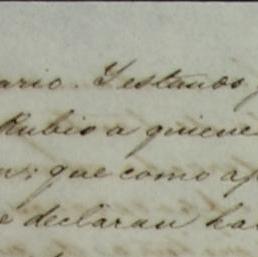 ario. Y estando
Rubio a quiene
n; que como ap
declaran ha